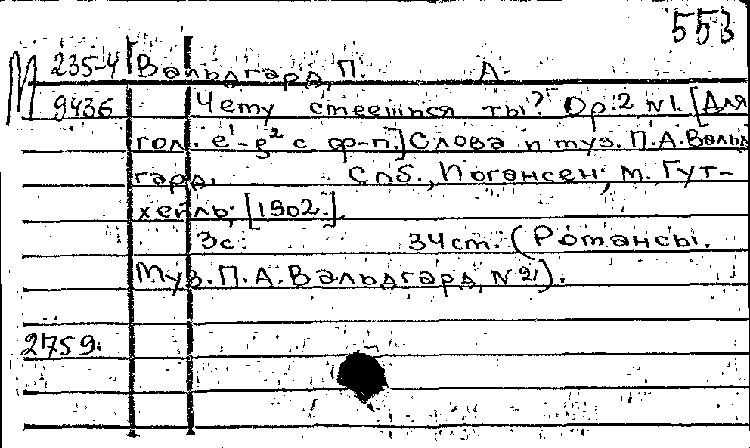 553
М 235-4 Вальдгард, П. А.
9436 Чему смеешься ты? Op.2 №1. [Для
гол. e¹-g² с ф-п.] Слова и муз. П.А.Вальд
гард. Спб., Иогансен; М. Гут-
хейль, [1902].
3с. 34см. (Романсы.
Муз. П.А.Вальдгард, №21).
2759.